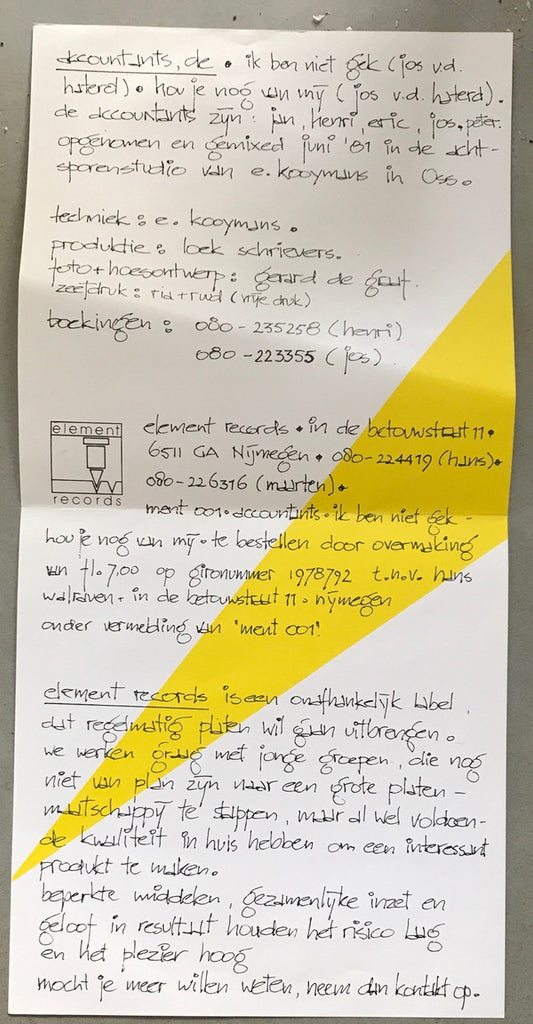 accountants, de • ik ben niet gek (jos v.d.
haterd) • hou je nog van mij (jos v.d. haterd).
de accountants zijn: jan, henri, eric, jos, peter.
opgenomen en gemixed juni '81 in de acht-
sporenstudio van e. kooymans in Oss.
techniek: e. kooymans.
produktie: loek schrievers.
foto + hoesontwerp: gerard de graaf.
zeefdruk: ria + ruud (vrije druk)
boekingen: 080-235258 (henri)
080-223355 (jos)
element
records
element records • in de betouwstraat 11 •
6511 GA Nijmegen • 080-224419 (hans) •
080-226316 (maarten) •
ment 001 • accountants • ik ben niet gek -
hou je nog van mij • te bestellen door overmaking
van fl. 7,00 op gironummer 1978792 t.n.v. hans
walraven • in de betouwstraat 11 • nijmegen
onder vermelding van 'ment 001'.
element records is een onafhankelijk label,
dat regelmatig platen wil gaan uitbrengen.
we werken graag met jonge groepen, die nog
niet van plan zijn naar een grote platen-
maatschappij te stappen, maar al wel voldoen-
de kwaliteit in huis hebben om een interessant
produkt te maken.
beperkte middelen, gezamenlijke inzet en
geloof in resultaat houden het risico laag
en het plezier hoog
mocht je meer willen weten, neem dan kontakt op.